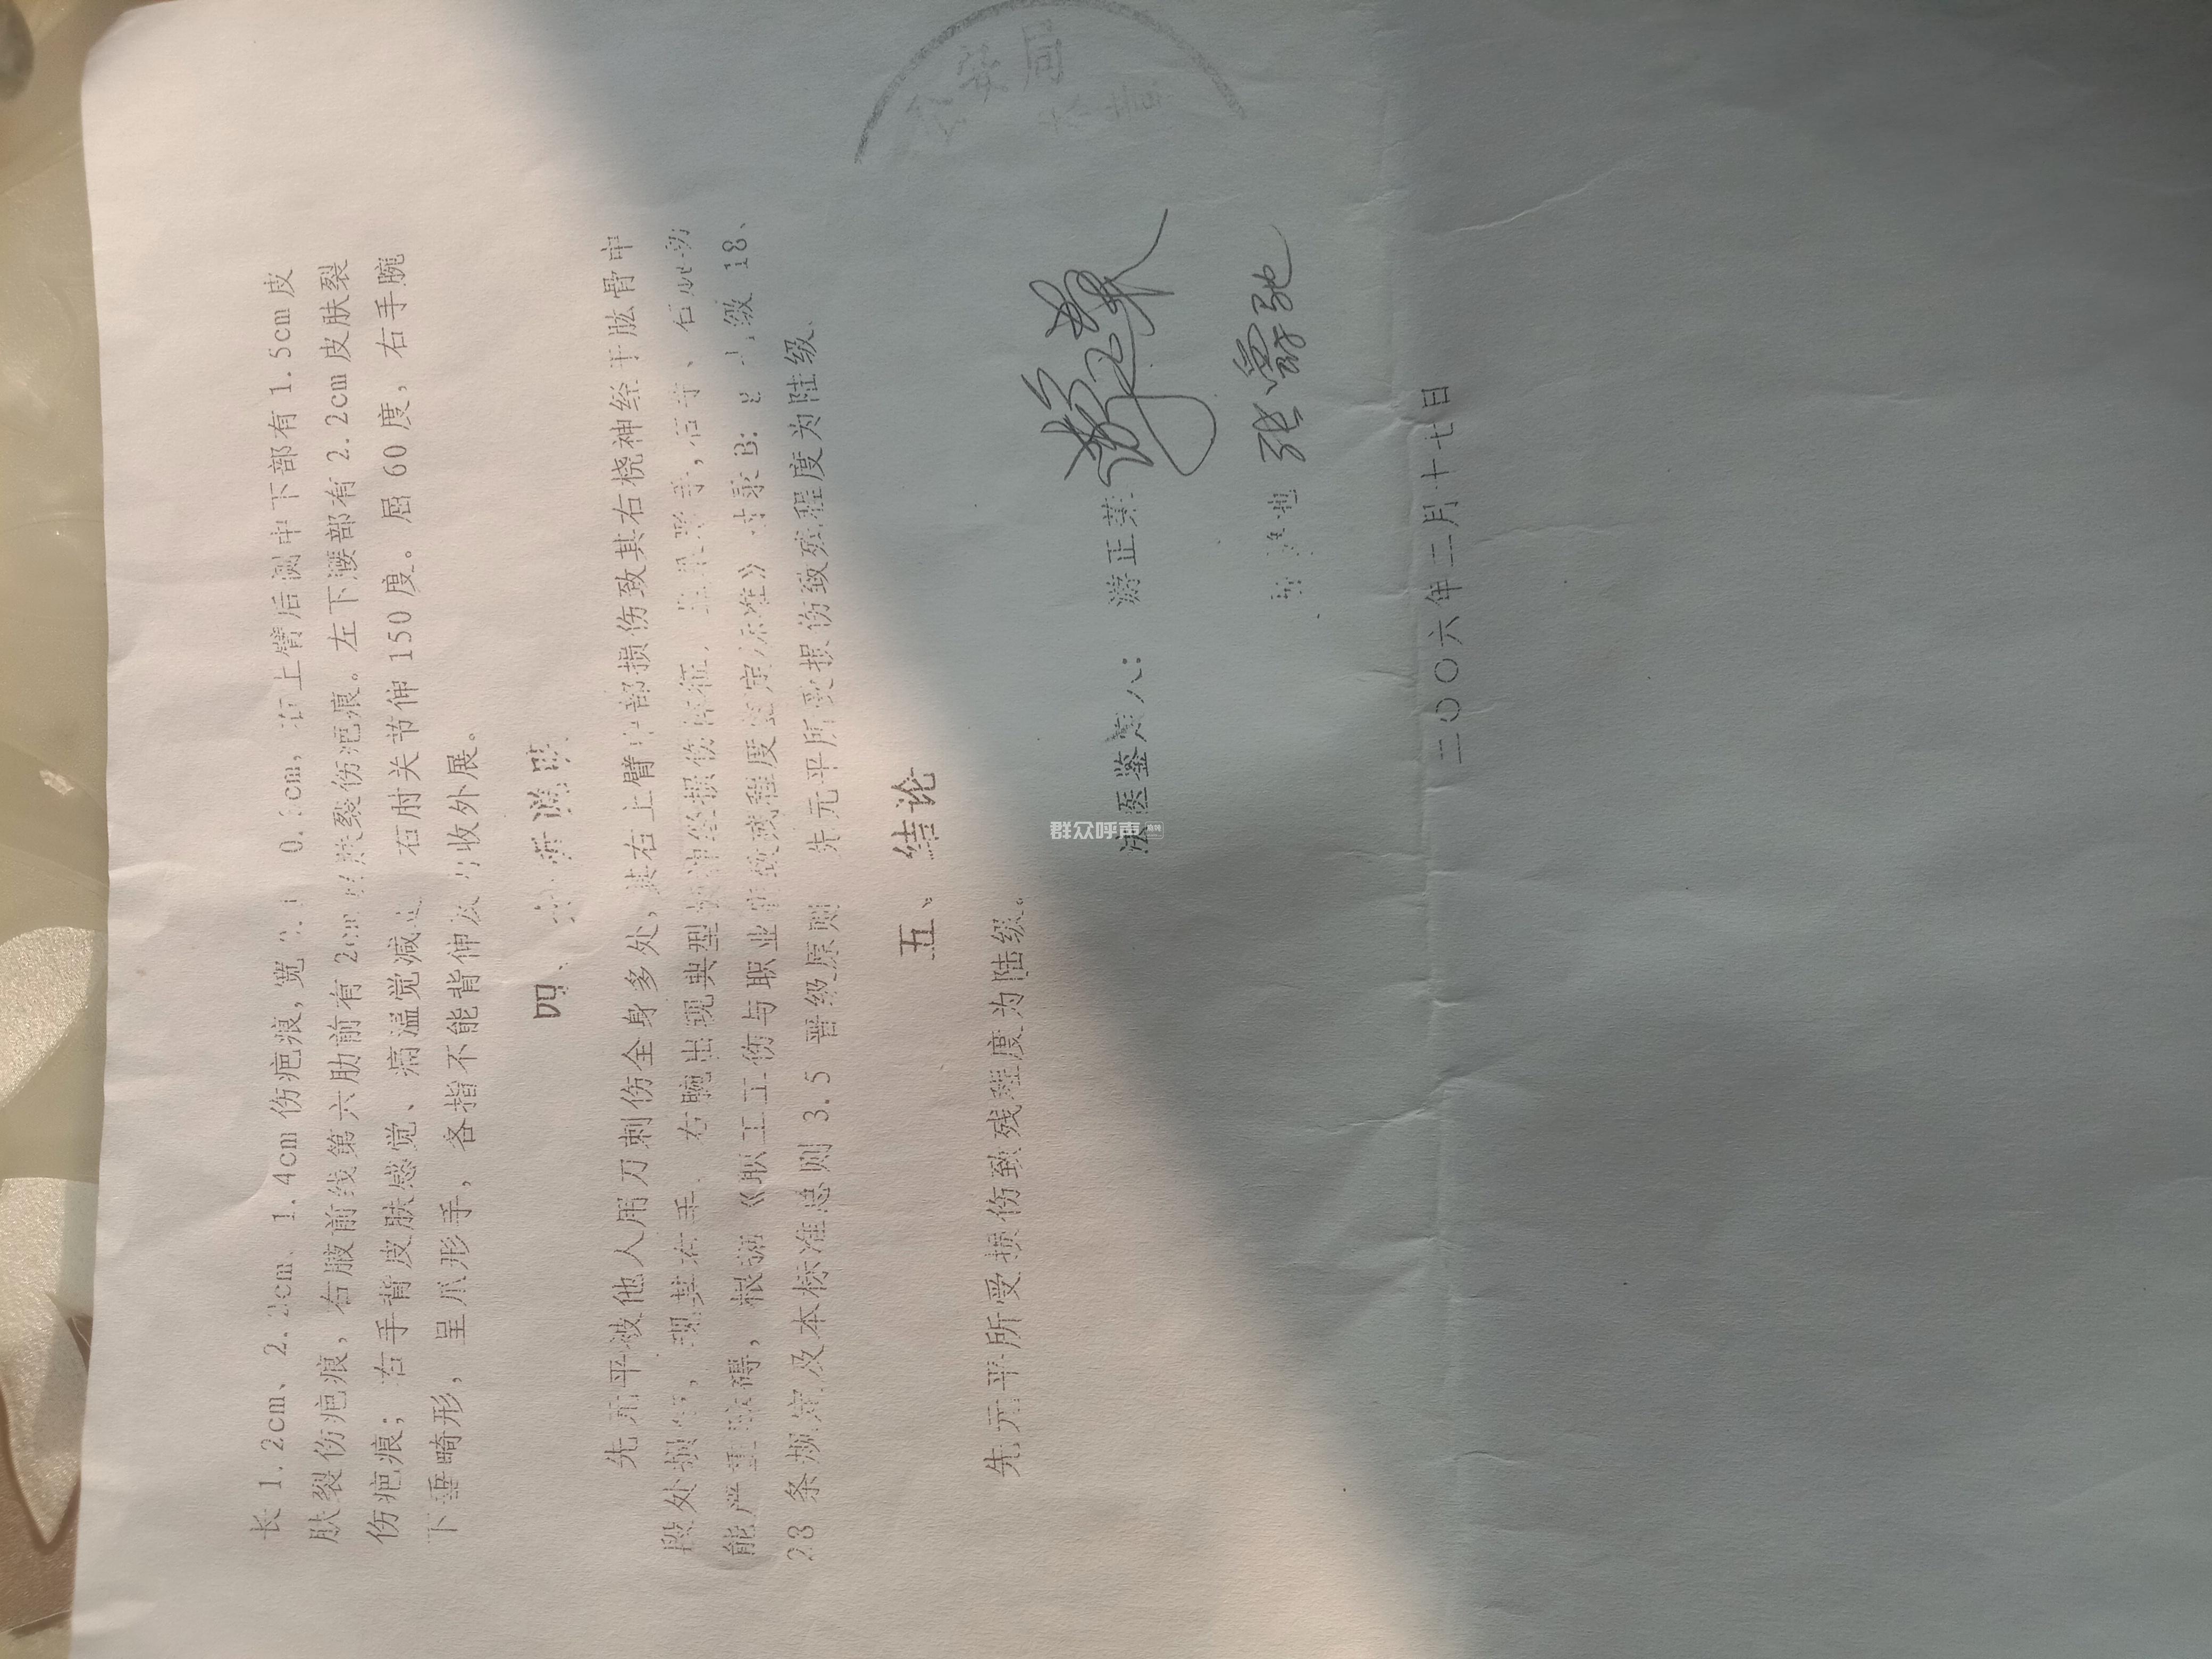 长 1.2cm、2.2cm、1.4cm 伤疤痕,宽 cm,右上臂后侧中下部有 1.5cm 皮
肤裂伤疤痕,右腋前线第六肋前有 2cm 肤裂伤疤痕。左下腰部有 2.2cm 皮肤裂
伤疤痕;右手背皮肤感觉、痛温觉减退 右肘关节伸 150 度。屈 60 度,右手腕
下垂畸形,呈爪形手,各指不能背伸及 收外展。
四、 说明
先元平被他人用刀刺伤全身多处,其右上臂中部损伤致其右桡神经于肱骨中
段处损伤,现其右手、右腕出现典型 神经损伤体征, 手,右手、右腕功
能严重障碍,根据《职工工伤与职业 致残程度鉴定标准》附录 B: 级 18、
28 条规定及本标准总则 3.5 晋级原则 先元平所受损伤致残程度为陆级.
五、结论
先元平所受损伤致残程度为陆级。
法医鉴定人: 游正荣
张 驰
二〇〇六年二月十七日
公安局
群众呼声